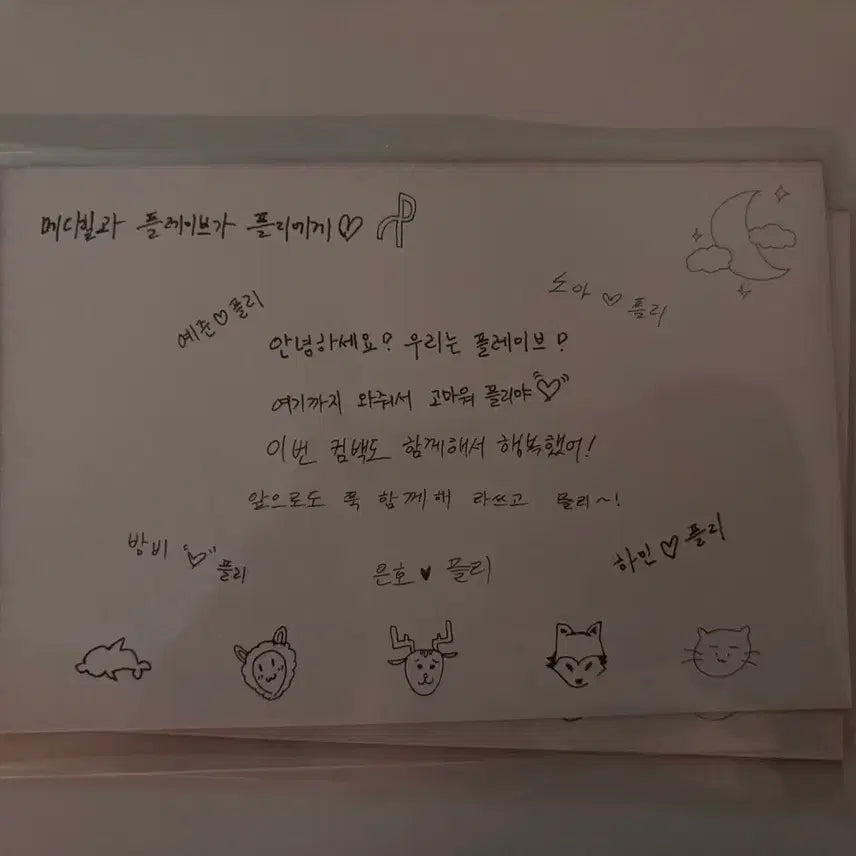 메디힐과 플레이브가 플리에게♡
예준♡플리
노아♡플리
안녕하세요? 우리는 플레이브?
여기까지 와줘서 고마워 플리야♡
이번 컴백도 함께해서 행복했어!
앞으로도 쭉 함께해 라쓰고 플리~!
밤비 "♡" 플리
은호♥플리
하민♡플리